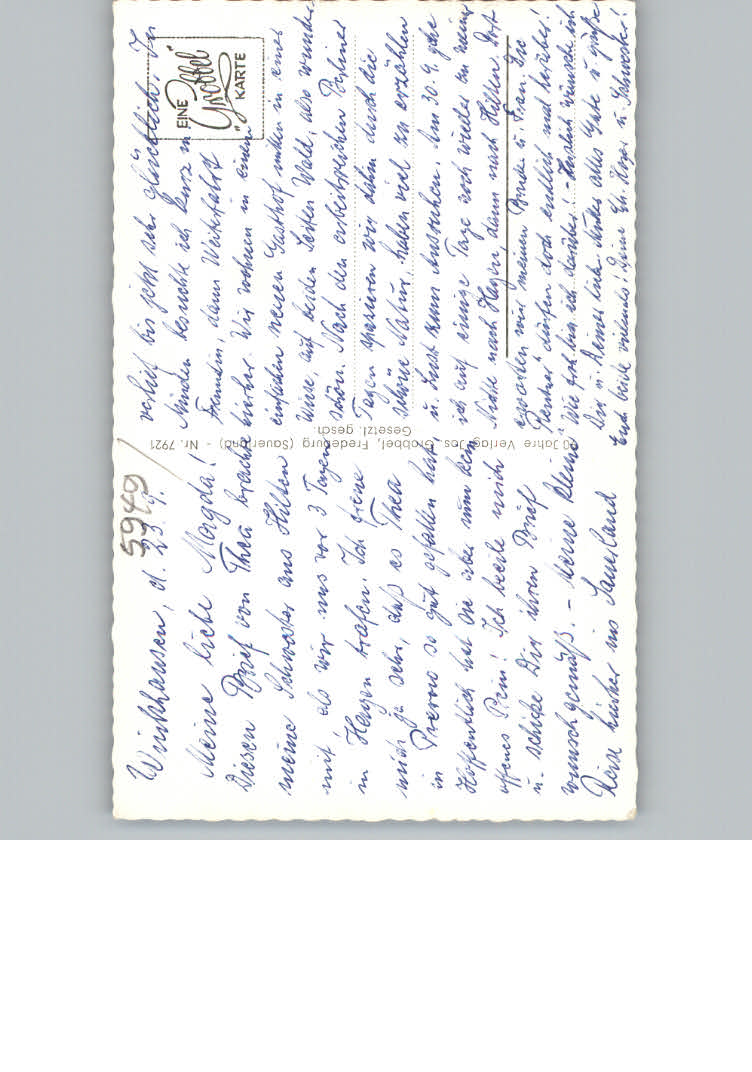 5949
Winkhausen, d. 23.9.
Meine liebe Magda!
Diesen Brief von Thea brachte
meine Schwester aus Hilten
mit, als wir uns vor 3 Tagen
in Hagen trafen. Ich freue
mich ja sehr, daß es Thea
in Prerow so gut gefallen hat,
Hoffentlich hat sie aber nun kein
offenes Bein! Ich beeile mich
u. schicke Dir ihren Brief
wunschgemäß. – Meine kleine
Reise hierher ins Sauerland
verlief bis jetzt sehr glücklich. In
Minden besuchte ich kurz m.
Freundin, dann Weiterfahrt
hierher. Wir wohnen in einem
einfachen neuen Gasthof mitten in einer
Wiese, auf beiden Seiten Wald, also wunder
schön. Nach den arbeitsreichen Berliner
Tagen spazieren wir dahin durch die
schöne Natur, haben viel zu erzählen
u. Lust zum Ausruhen. Am 30.9. gehe
ich auf einige Tage noch wieder zu meiner
Nichte nach Hagen, dann nach Hilten. Dort
erwarten wir meinen Bruder u. Frau. Die
"Rentner" dürfen doch endlich mal herüber!
Wie froh bin ich darüber! – Herzlich wünsche ich
Dir u. Deiner lieb. alles Gute u. grüße
Euch beide vielmals! Deine u. Schwester!
EINE
Grobbel
KARTE
Jahre Verlag Jos. Grobbel, Fredeburg (Sauerland) - Nr. 7921
Gesetzl. gesch.